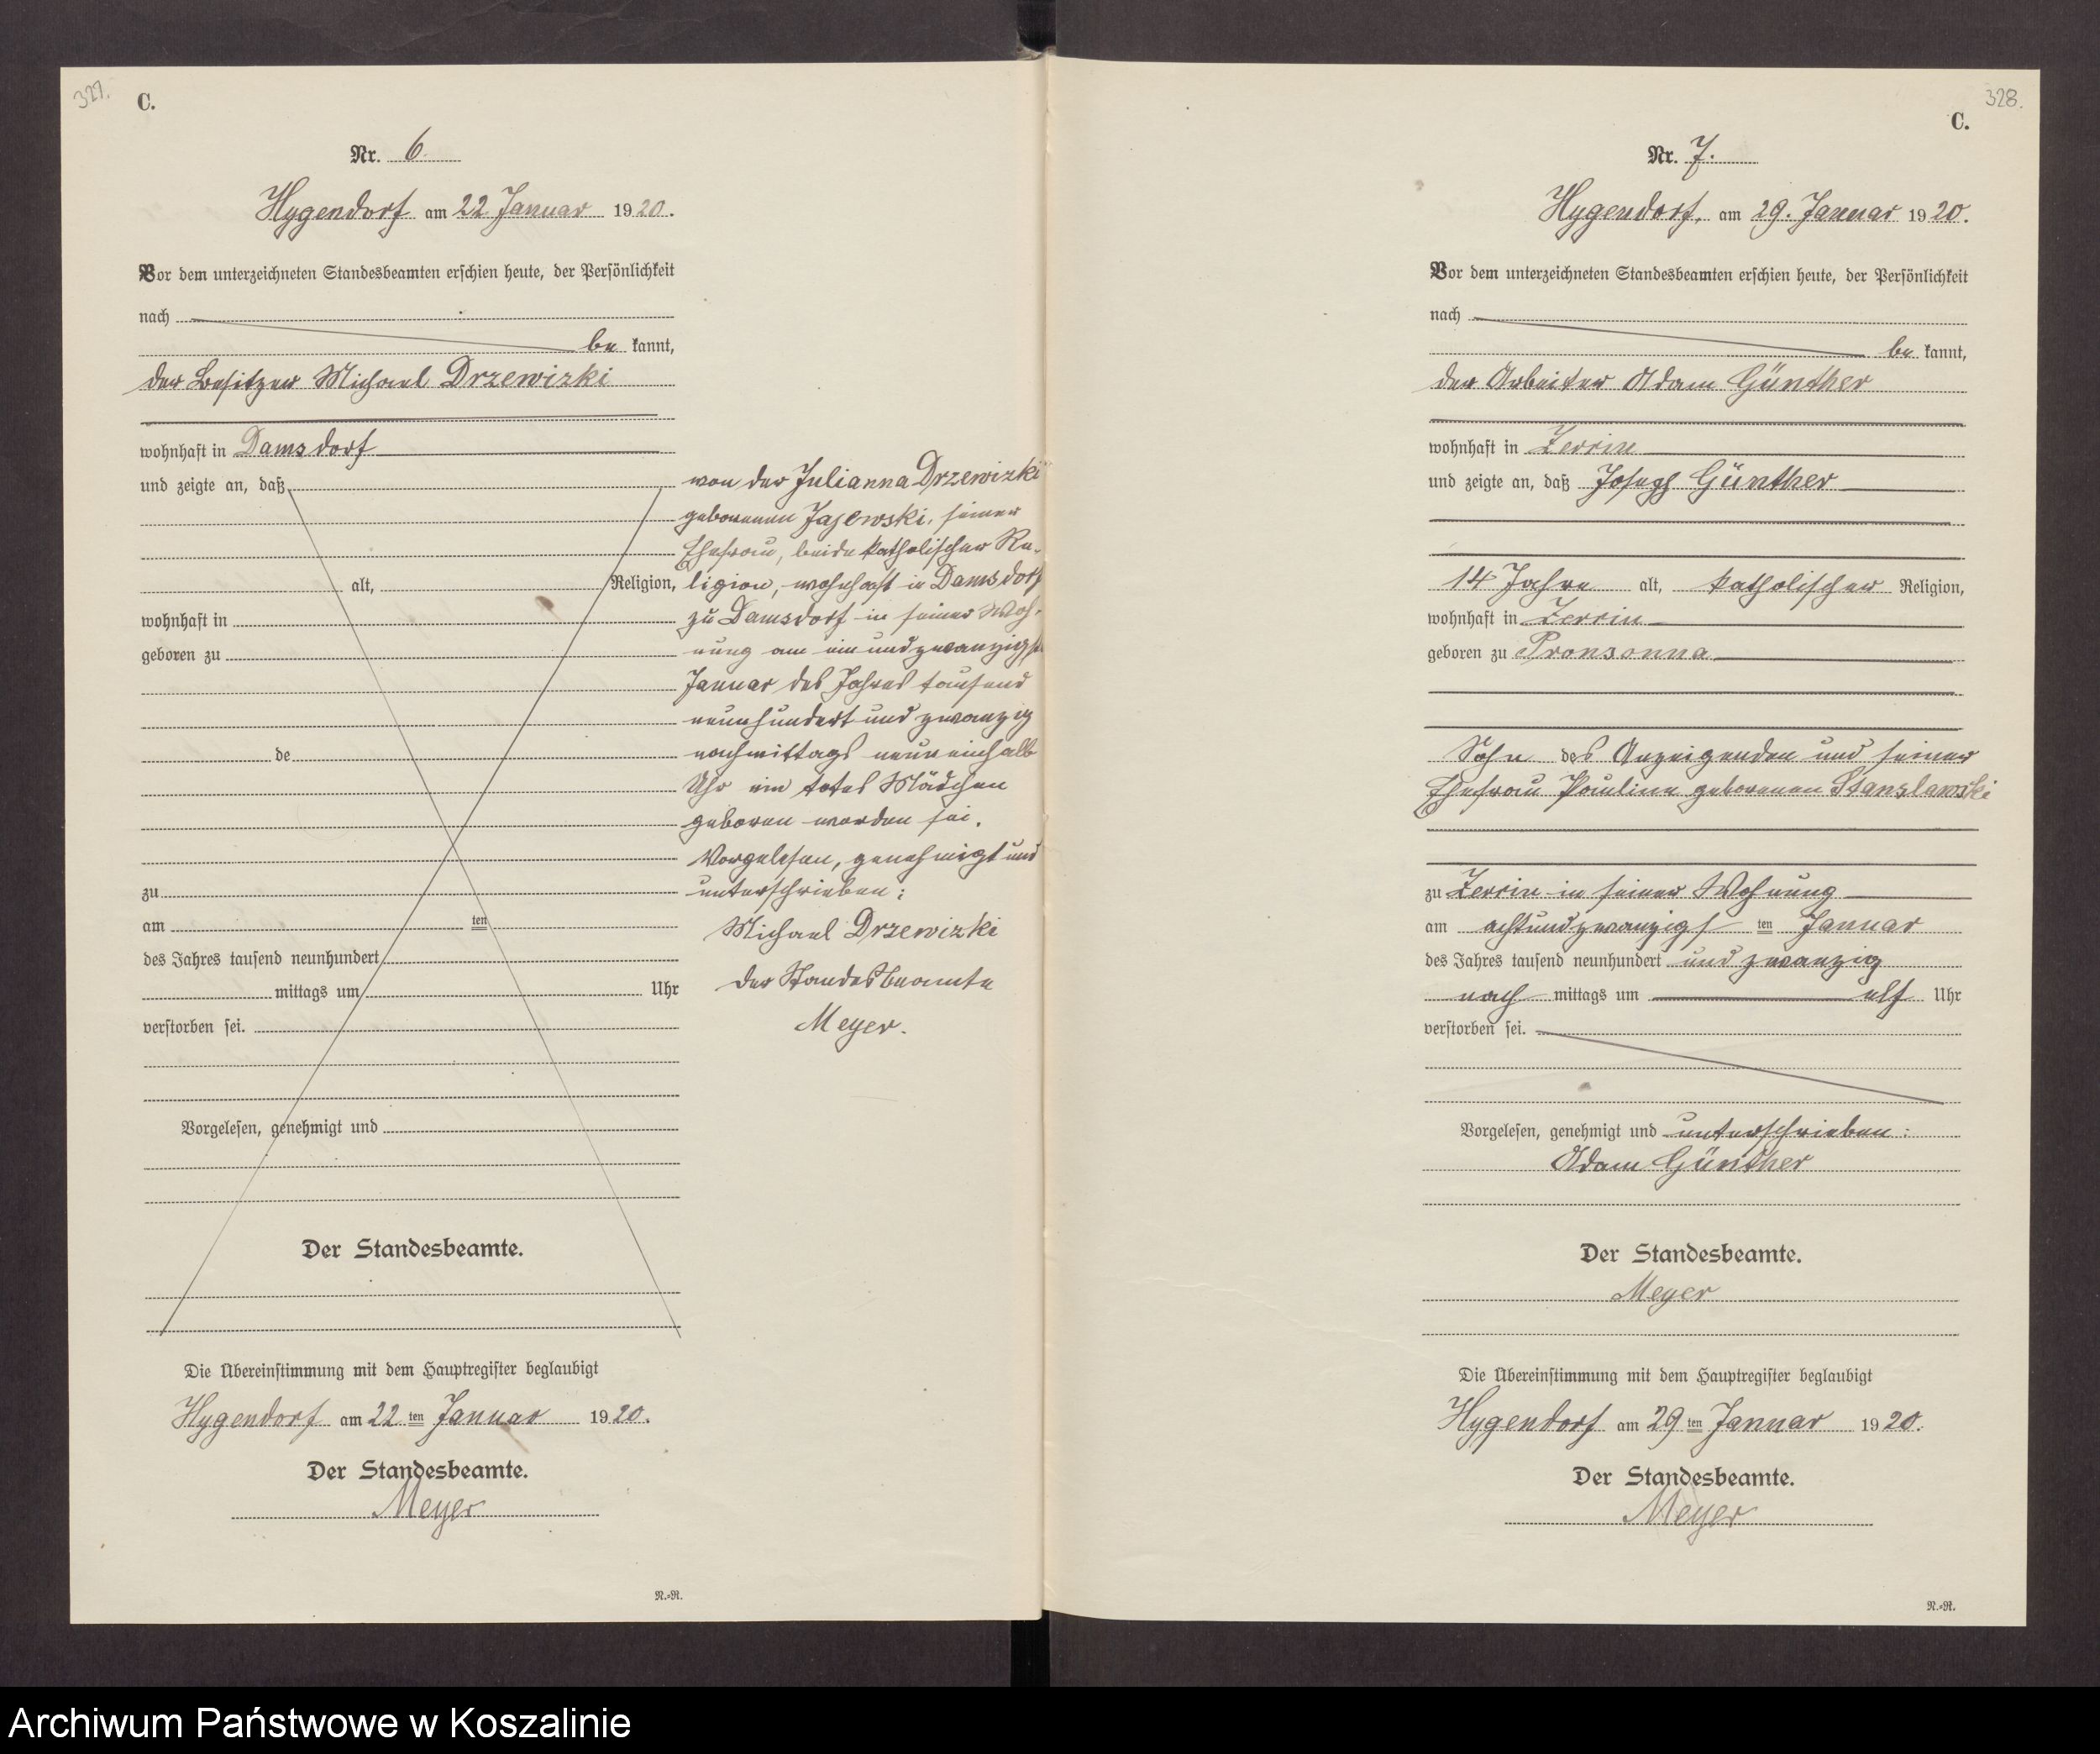 327.
C.
Nr. 6.
Hygendorf am 22 Januar 1920.
Vor dem unterzeichneten Standesbeamten erschien heute, der Persönlichkeit
nach
be kannt,
der Besitzer Michael Drzewizki
wohnhaft in Damsdorf
und zeigte an, daß
alt, Religion,
wohnhaft in
geboren zu
de
zu
am ten
des Jahres tausend neunhundert
mittags um Uhr
verstorben sei.
Vorgelesen, genehmigt und
Der Standesbeamte.
von der Julianna Drzewizki
geborenen Jajewski, seiner
Ehefrau, beide katholischer Re-
ligion, wohnhaft in Damsdorf
zu Damsdorf in seiner Woh-
nung am einundzwanzigsten
Januar des Jahres tausend
neunhundert und zwanzig
nachmittags neuneinhalb
Uhr ein totes Mädchen
geboren worden sei.
Vorgelesen, genehmigt und
unterschrieben:
Michael Drzewizki
Der Standesbeamte
Meyer.
Die Übereinstimmung mit dem Hauptregister beglaubigt
Hygendorf am 22 ten Januar 1920.
Der Standesbeamte.
Meyer
N.=R.
328.
C.
Nr. 7.
Hygendorf, am 29. Januar 1920.
Vor dem unterzeichneten Standesbeamten erschien heute, der Persönlichkeit
nach
be kannt,
der Arbeiter Adam Günther
wohnhaft in Zerrin
und zeigte an, daß Joseph Günther
14 Jahre alt, katholischer Religion,
wohnhaft in Zerrin
geboren zu Pronsonna
Sohn des Anzeigenden und seiner
Ehefrau Pauline geborenen Stanslawski
zu Zerrin in seiner Wohnung
am achtundzwanzigs ten Januar
des Jahres tausend neunhundert und zwanzig
nach mittags um elf Uhr
verstorben sei.
Vorgelesen, genehmigt und unterschrieben:
Adam Günther
Der Standesbeamte.
Meyer
Die Übereinstimmung mit dem Hauptregister beglaubigt
Hygendorf am 29 ten Januar 1920.
Der Standesbeamte.
Meyer
N.=R.
Archiwum Państwowe w Koszalinie